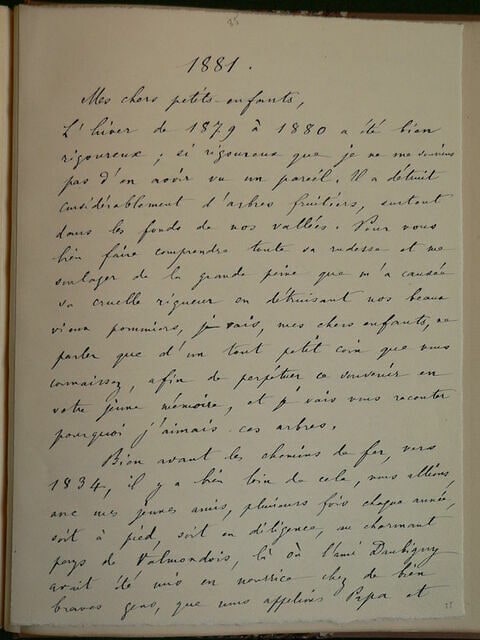 1881.
Mes chers petits-enfants,
L'hiver de 1879 à 1880 a été bien
rigoureux ; si rigoureux que je ne me souviens
pas d'en avoir vu un pareil. Il a détruit
considérablement d'arbres fruitiers, surtout
dans les fonds de nos vallées. Pour vous
bien faire comprendre toute sa rudesse et me
soulager de la grande peine que m'a causée
sa cruelle rigueur en détruisant nos beaux
vieux pommiers, je vais, mes chers enfants, ne
parler que d'un tout petit coin que vous
connaissez, afin de perpétuer ce souvenir en
votre jeune mémoire, et je vais vous raconter
pourquoi j'aimais ces arbres.
Bien avant les chemins de fer, vers
1834, il y a bien loin de cela, nous allions,
avec mes jeunes amis, plusieurs fois chaque année,
soit à pied, soit en diligence, au charmant
pays de Valmondois, là où l'ami Daubigny
avait été mis en nourrice chez de bien
braves gens, que nous appelions Papa et